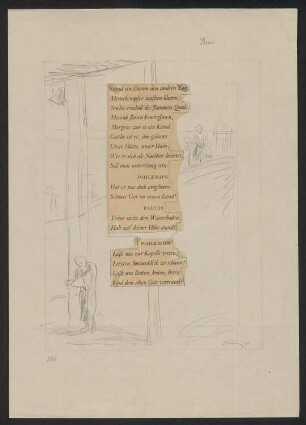 Stand ein Damm den andern Tag.
Menschenopfer mußten bluten,
Nachts erscholl des Jammers Qual;
Meerab flossen Feuergluten,
Morgens war es ein Kanal.
Gottlos ist er, ihn gelüstet
Unsre Hütte, unser Hain;
Wie er sich als Nachbar brüstet,
Soll man untertänig sein.
PHILEMON
Hat er uns doch angeboten
Schönes Gut im neuen Land!
BAUCIS
Traue nicht dem Wasserboden,
Halt auf deiner Höhe stand!
PHILEMON
Laßt uns zur Kapelle treten,
Letzten Sonnenblick zu schaun!
Laßt uns läuten, knieen, beten
Und dem alten Gott vertraun!